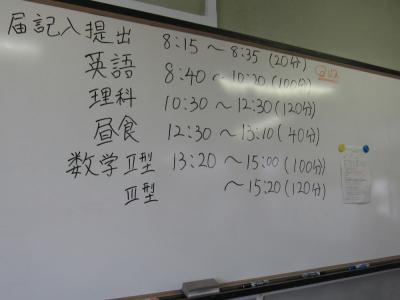 届記入提出 8:15 ～ 8:35 (20分)
英語 8:40 ～ 10:20 (100分)
理科 10:30 ～ 12:30 (120分)
昼食 12:30 ～ 13:10 (40分)
数学Ⅱ型 13:20 ～ 15:00 (100分)
Ⅲ型 ～ 15:20 (120分)